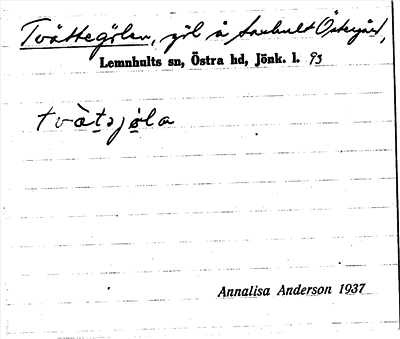 Tvättegölen, göl å Saxhult Östergård,
Lemnhults sn, Östra hd, Jönk. l. 93
tvät̲ɜjəl̲a
Annalisa Anderson 1937